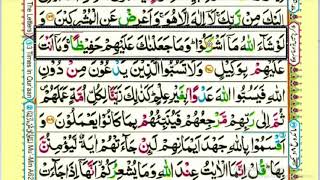 اِلَيْكَ مِنْ رَّبِّكَ لَاۤ اِلٰهَ اِلَّا هُوَ وَاَعْرِضْ عَنِ الْمُشْرِكِيْنَ
لَوْ شَآءَ اللّٰهُ مَاۤ اَشْرَكُوْا وَمَا جَعَلْنٰكَ عَلَيْهِمْ حَفِيْظًا وَمَاۤ اَنْتَ
عَلَيْهِمْ بِوَكِيْلٍ وَلَا تَسُبُّوا الَّذِيْنَ يَدْعُوْنَ مِنْ دُوْنِ
اللّٰهِ فَيَسُبُّوا اللّٰهَ عَدْوًۢا بِغَيْرِ عِلْمٍ كَذٰلِكَ زَيَّنَّا لِكُلِّ اُمَّةٍ عَمَلَهُمْ
ثُمَّ اِلٰى رَبِّهِمْ مَّرْجِعُهُمْ فَيُنَبِّئُهُمْ بِمَا كَانُوْا يَعْمَلُوْنَ
وَاَقْسَمُوْا بِاللّٰهِ جَهْدَ اَيْمَانِهِمْ لَئِنْ جَآءَتْهُمْ اٰيَةٌ لَّيُؤْمِنُنَّ
بِهَا قُلْ اِنَّمَا الْاٰيٰتُ عِنْدَ اللّٰهِ وَمَا يُشْعِرُكُمْ اَنَّهَاۤ اِذَا جَآءَتْ